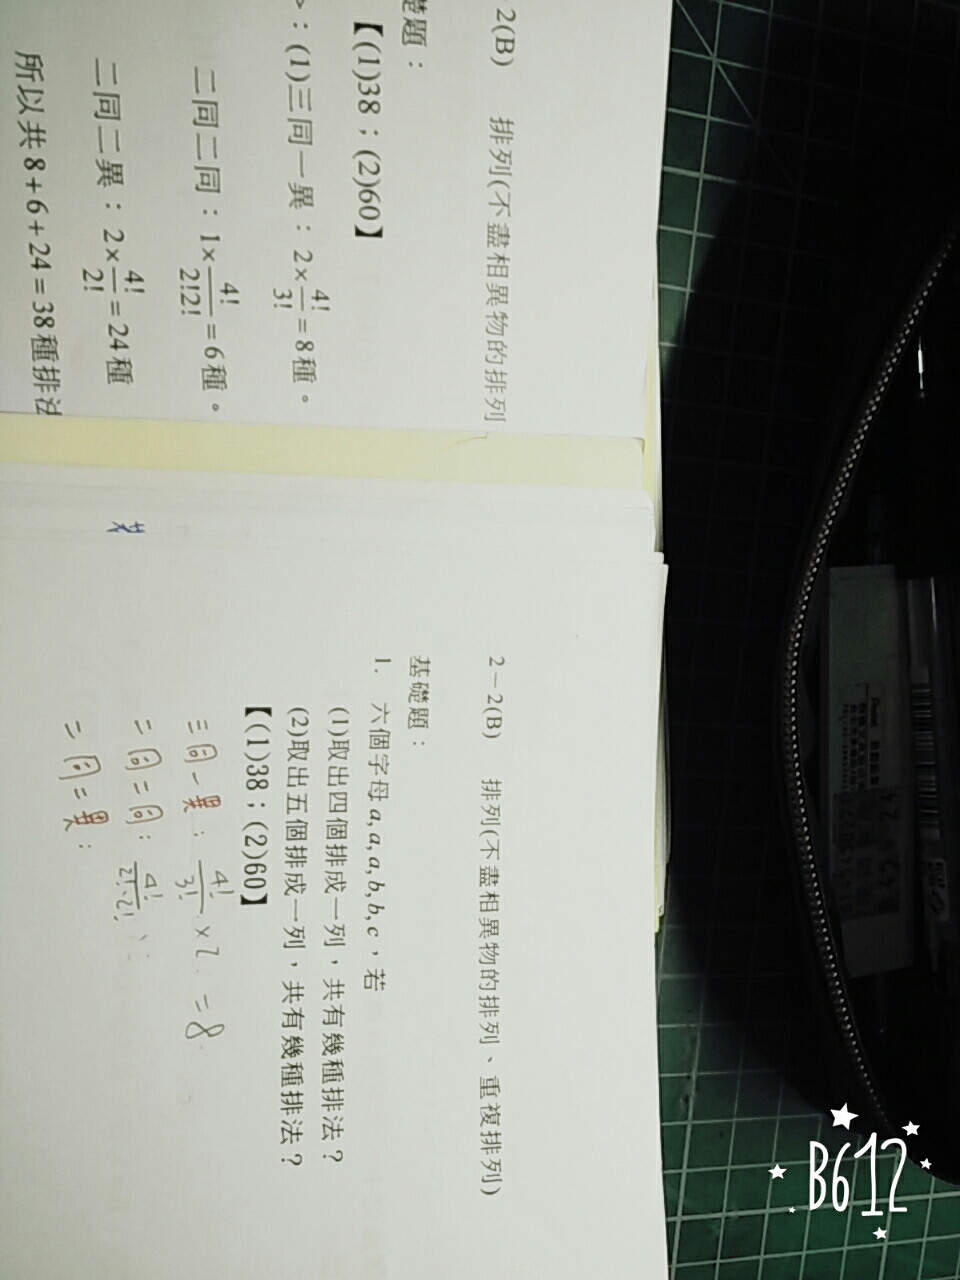 2(B) 排列(不盡相異物的排列
礎題：
【(1)38；(2)60】
：(1)三同一異：2×4!/3!=8種。
二同二同：1×4!/2!2!=6種。
二同二異：2×4!/2!=24種
所以共8+6+24=38種排法
2－2(B) 排列(不盡相異物的排列、重複排列)
基礎題：
1. 六個字母a,a,a,b,b,c，若
(1)取出四個排成一列，共有幾種排法？
(2)取出五個排成一列，共有幾種排法？
【(1)38；(2)60】
三同一異：4!/3! ×2 =8
二同二同：4!/2!、2!、
二同二異：
B612